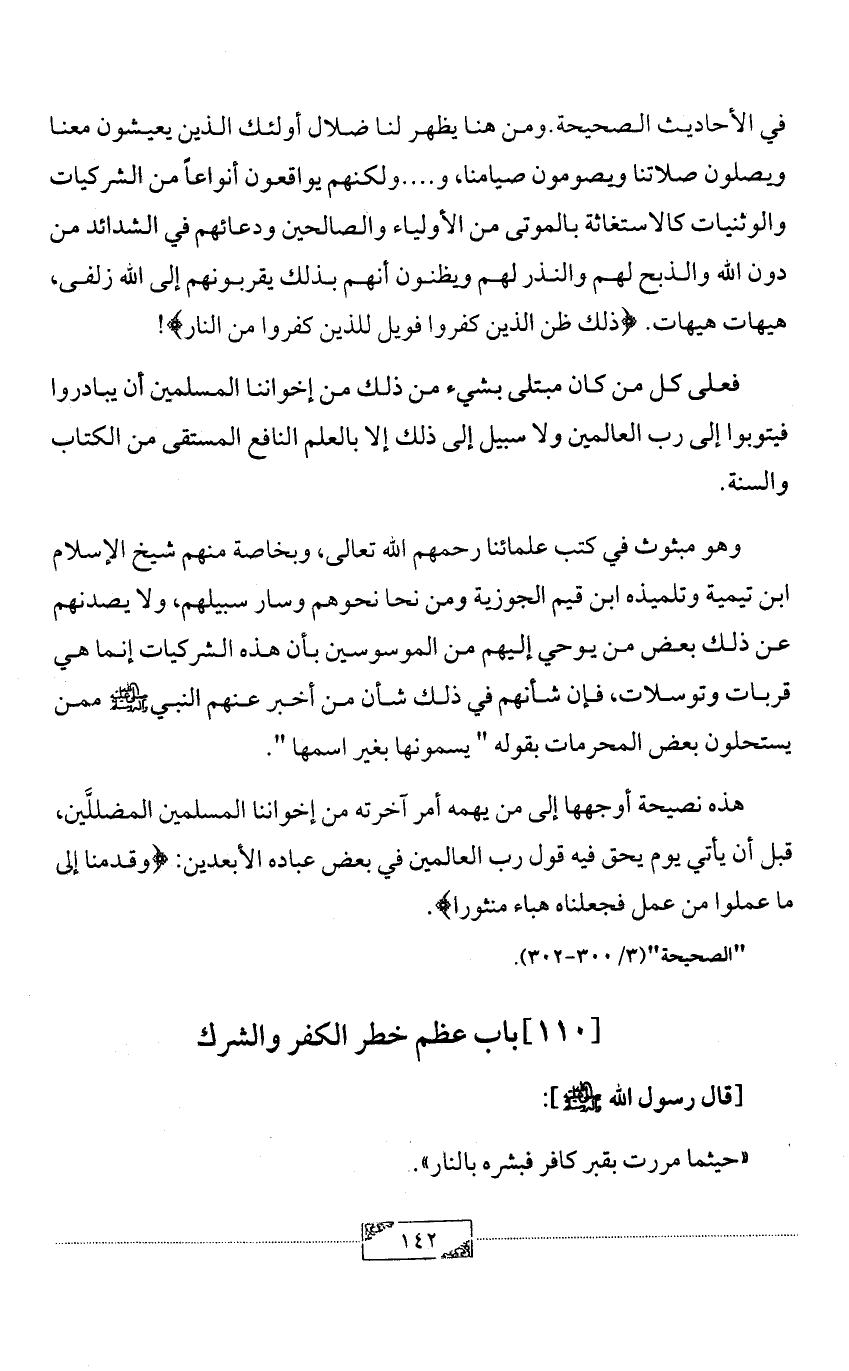 في الأحاديث الصحيحة.ومن هنا يظهر لنا ضلال أولئك الذين يعيشون معنا
ويصلون صلاتنا ويصومون صيامنا، و....ولكنهم يواقعون أنواعاً من الشركيات
والوثنيات كالاستغاثة بالموتى من الأولياء والصالحين ودعائهم في الشدائد من
دون الله والذبح لهم والنذر لهم ويظنون أنهم بذلك يقربونهم إلى الله زلفى،
هيهات هيهات. ﴿ذلك ظن الذين كفروا فويل للذين كفروا من النار﴾!
فعلى كل من كان مبتلى بشيء من ذلك من إخواننا المسلمين أن يبادروا
فيتوبوا إلى رب العالمين ولا سبيل إلى ذلك إلا بالعلم النافع المستقى من الكتاب
والسنة.
وهو مبثوث في كتب علمائنا رحمهم الله تعالى، وبخاصة منهم شيخ الإسلام
ابن تيمية وتلميذه ابن قيم الجوزية ومن نحا نحوهم وسار سبيلهم، ولا يصدنهم
عن ذلك بعض من يوحي إليهم من الموسوسين بأن هذه الشركيات إنما هي
قربات وتوسلات، فإن شأنهم في ذلك شأن من أخبر عنهم النبي ﷺ ممن
يستحلون بعض المحرمات بقوله " يسمونها بغير اسمها ".
هذه نصيحة أوجهها إلى من يهمه أمر آخرته من إخواننا المسلمين المضللَّين،
قبل أن يأتي يوم يحق فيه قول رب العالمين في بعض عباده الأبعدين: ﴿وقدمنا إلى
ما عملوا من عمل فجعلناه هباء منثورا﴾.
"الصحيحة"(٣/ ٣٠٠-٣٠٢).
[١١٠] باب عظم خطر الكفر والشرك
[قال رسول الله ﷺ]:
«حيثما مررت بقبر كافر فبشره بالنار».
١٤٢